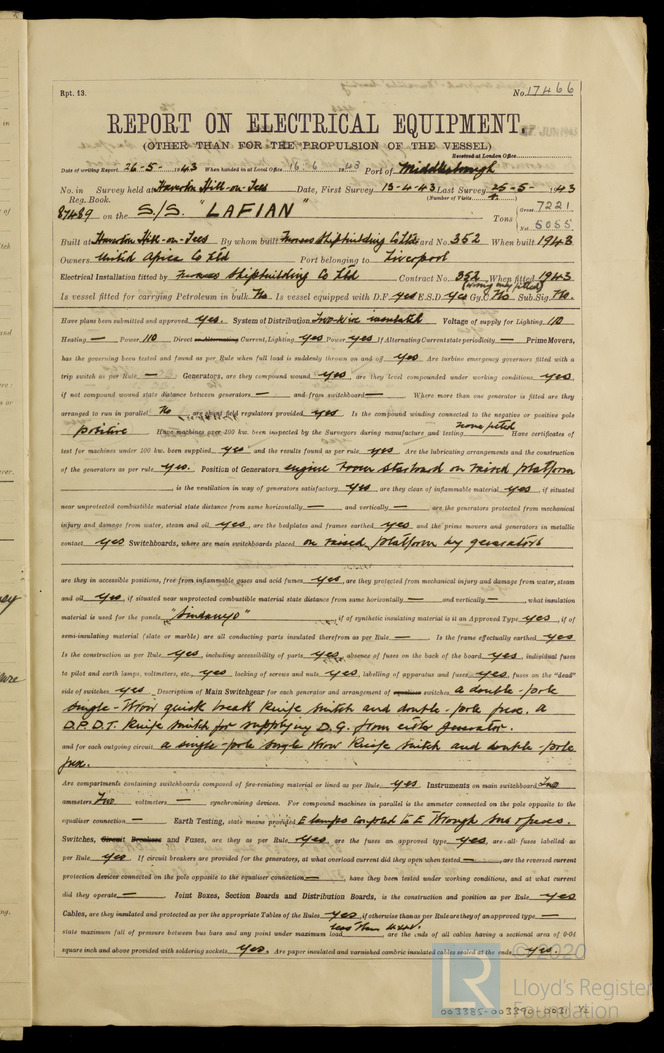 Rpt. 13.
No. 17466
REPORT ON ELECTRICAL EQUIPMENT.
(OTHER THAN FOR THE PROPULSION OF THE VESSEL)
Received at London Office
Date of writing Report 26-5-1943 When handed in at Local Office 16.6 1943 Port of Middlesbrough
No. in Survey held at Haverton Hill-on-Tees Date, First Survey 13-4-43 Last Survey 25-5-1943
Reg. Book. (Number of Visits 4)
87489 on the S/S. "LAFIAN" Tons Gross 7221
Net 5055
Built at Haverton Hill-on-Tees By whom built Furness Shipbuilding Co Ltd Yard No. 352 When built 1943
Owners United Africa Co Ltd Port belonging to Liverpool
Electrical Installation fitted by Furness Shipbuilding Co Ltd Contract No. 352 When fitted 1943
(wiring only fitted)
Is vessel fitted for carrying Petroleum in bulk No. Is vessel equipped with D.F. yes E.S.D. yes Gy.C. No. Sub.Sig. No.
Have plans been submitted and approved yes. System of Distribution Two-wire insulated Voltage of supply for Lighting 110
Heating — Power 110 Direct or Alternating Current, Lighting yes Power yes If Alternating Current state periodicity — Prime Movers,
has the governing been tested and found as per Rule when full load is suddenly thrown on and off yes Are turbine emergency governors fitted with a
trip switch as per Rule — Generators, are they compound wound yes, are they level compounded under working conditions yes,
if not compound wound state distance between generators — and from switchboard — Where more than one generator is fitted are they
arranged to run in parallel No, are shunt field regulators provided yes Is the compound winding connected to the negative or positive pole
positive Have machines over 100 kw. been inspected by the Surveyors during manufacture and testing none fitted Have certificates of
test for machines under 100 kw. been supplied yes and the results found as per rule yes Are the lubricating arrangements and the construction
of the generators as per rule yes. Position of Generators engine room starboard on raised platform
, is the ventilation in way of generators satisfactory yes are they clear of inflammable material yes, if situated
near unprotected combustible material state distance from same horizontally — and vertically — are the generators protected from mechanical
injury and damage from water, steam and oil yes, are the bedplates and frames earthed yes and the prime movers and generators in metallic
contact yes Switchboards, where are main switchboards placed on raised platform by generators
are they in accessible positions, free from inflammable gases and acid fumes yes, are they protected from mechanical injury and damage from water, steam
and oil yes, if situated near unprotected combustible material state distance from same horizontally — and vertically —, what insulation
material is used for the panels "Sindanyo", if of synthetic insulating material is it an Approved Type yes, if of
semi-insulating material (slate or marble) are all conducting parts insulated therefrom as per Rule — Is the frame effectually earthed yes
Is the construction as per Rule yes, including accessibility of parts yes, absence of fuses on the back of the board yes, individual fuses
to pilot and earth lamps, voltmeters, etc., yes locking of screws and nuts yes, labelling of apparatus and fuses yes, fuses on the "dead"
side of switches yes. Description of Main Switchgear for each generator and arrangement of equaliser switches a double-pole
single-throw quick break knife switch and double-pole fuse. a
D.P.D.T. knife switch for supplying D.G. from either generator.
and for each outgoing circuit a single-pole single throw knife switch and double-pole
fuse.
Are compartments containing switchboards composed of fire-resisting material or lined as per Rule yes Instruments on main switchboard Two
ammeters Two voltmeters — synchronising devices. For compound machines in parallel is the ammeter connected on the pole opposite to the
equaliser connection — Earth Testing, state means provided E lamps coupled to E through sws & fuses.
Switches, Circuit Breakers and Fuses, are they as per Rule yes, are the fuses an approved type yes, are all fuses labelled as
per Rule yes If circuit breakers are provided for the generators, at what overload current did they open when tested —, are the reversed current
protection devices connected on the pole opposite to the equaliser connection —, have they been tested under working conditions, and at what current
did they operate — Joint Boxes, Section Boards and Distribution Boards, is the construction and position as per Rule yes
Cables, are they insulated and protected as per the appropriate Tables of the Rules yes, if otherwise than as per Rule are they of an approved type —
state maximum fall of pressure between bus bars and any point under maximum load less than are the ends of all cables having a sectional area of 0·04
square inch and above provided with soldering sockets yes. Are paper insulated and varnished cambric insulated cables sealed at the ends yes.
© 2020
LR
Lloyd's Register
Foundation
003385-003390-0031 1/2